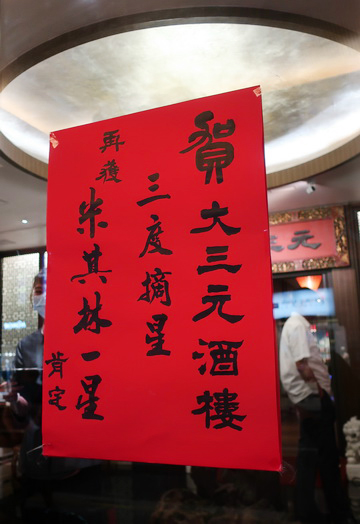 賀大三元酒樓
三度摘星
再獲米其林一星肯定
元